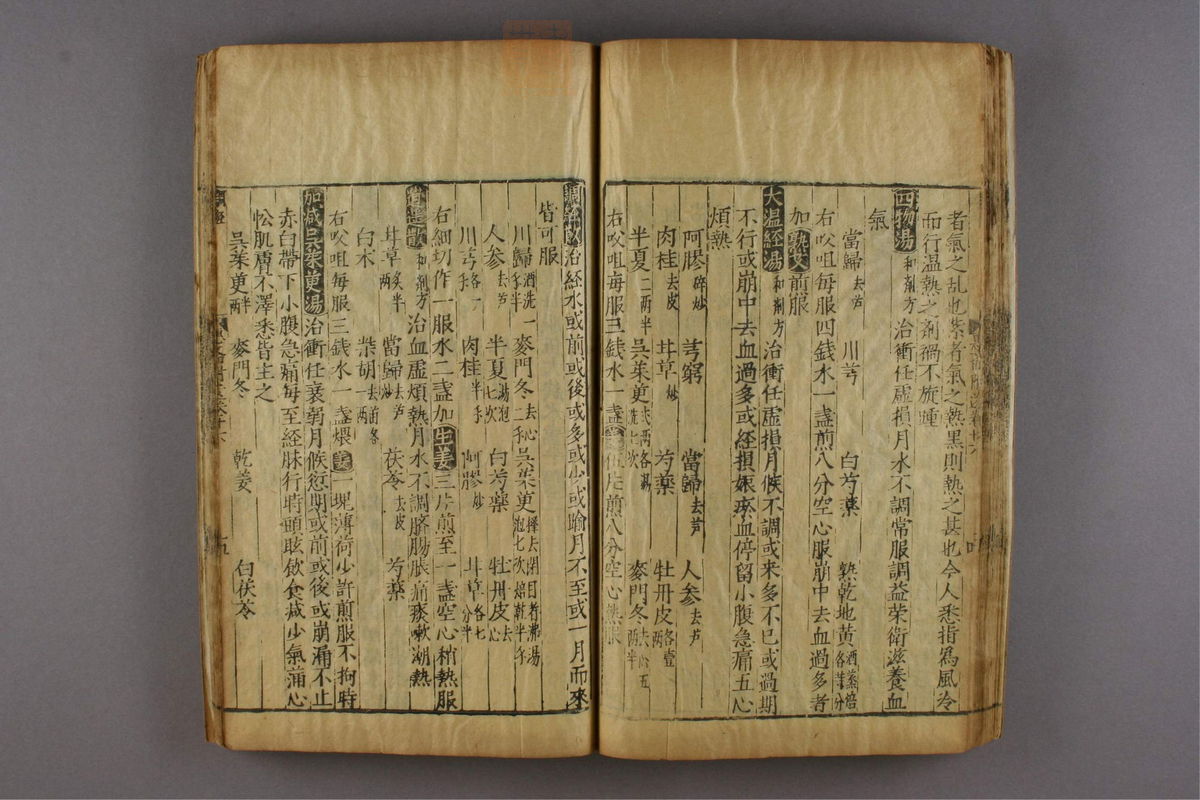 者氣之乱也紫者氣之熱黑則熱之甚也今人悉指爲風冷
而行温熱之剤禍不旋踵
四物湯和剤方治衝任虚損月水不調常服調益荣衛滋養血
氣
當歸去芦 川芎 白芍藥 熟乾地黃酒蒸焙各等分
右㕮咀每服四錢水一盞煎八分空心服崩中去血過多者
加熟艾煎服
大温経湯和剤方治衝任虚損月候不調或来多不已或過期
不行或崩中去血過多或経損娠瘀血停留小腹急痛五心
煩熱
阿膠碎炒 芎窮 當歸去芦 人参去芦
肉桂去皮 甘草炒 芍藥 牡丹皮各壹兩
半夏二兩半 吳茱萸 麥門冬
右㕮咀每服三錢水一盞 煎八分空心熱服
調経散治経水或前或後或多或少或踰月不至或一月而來
皆可服
川歸酒洗一半 麥門冬去心 吳茱萸
人参去芦 半夏湯泡七次 白芍藥 牡丹皮去心
川芎各一 肉桂半 阿膠炒 甘草各七分半
右細切作一服水二盞加生姜三片煎至一盞空心稍熱服
逍遥散和剤方治血虚煩熱月水不調臍腸脹痛痰嗽潮熱
甘草炙半兩 當歸去芦 茯苓去皮 芍藥
白术 柴胡去苗各一兩
右㕮咀每服三錢水一盞煨姜一塊薄荷少許煎服不拘時
加减吳茱萸湯治衝任衰弱月候愆期或前或後或崩漏不止
赤白帶下小腹急痛每至経脉行時頭眩飲食减少氣蒲心
忪肌膚不澤悉皆主之
吳茱萸半兩 麥門冬 乾姜 白茯苓